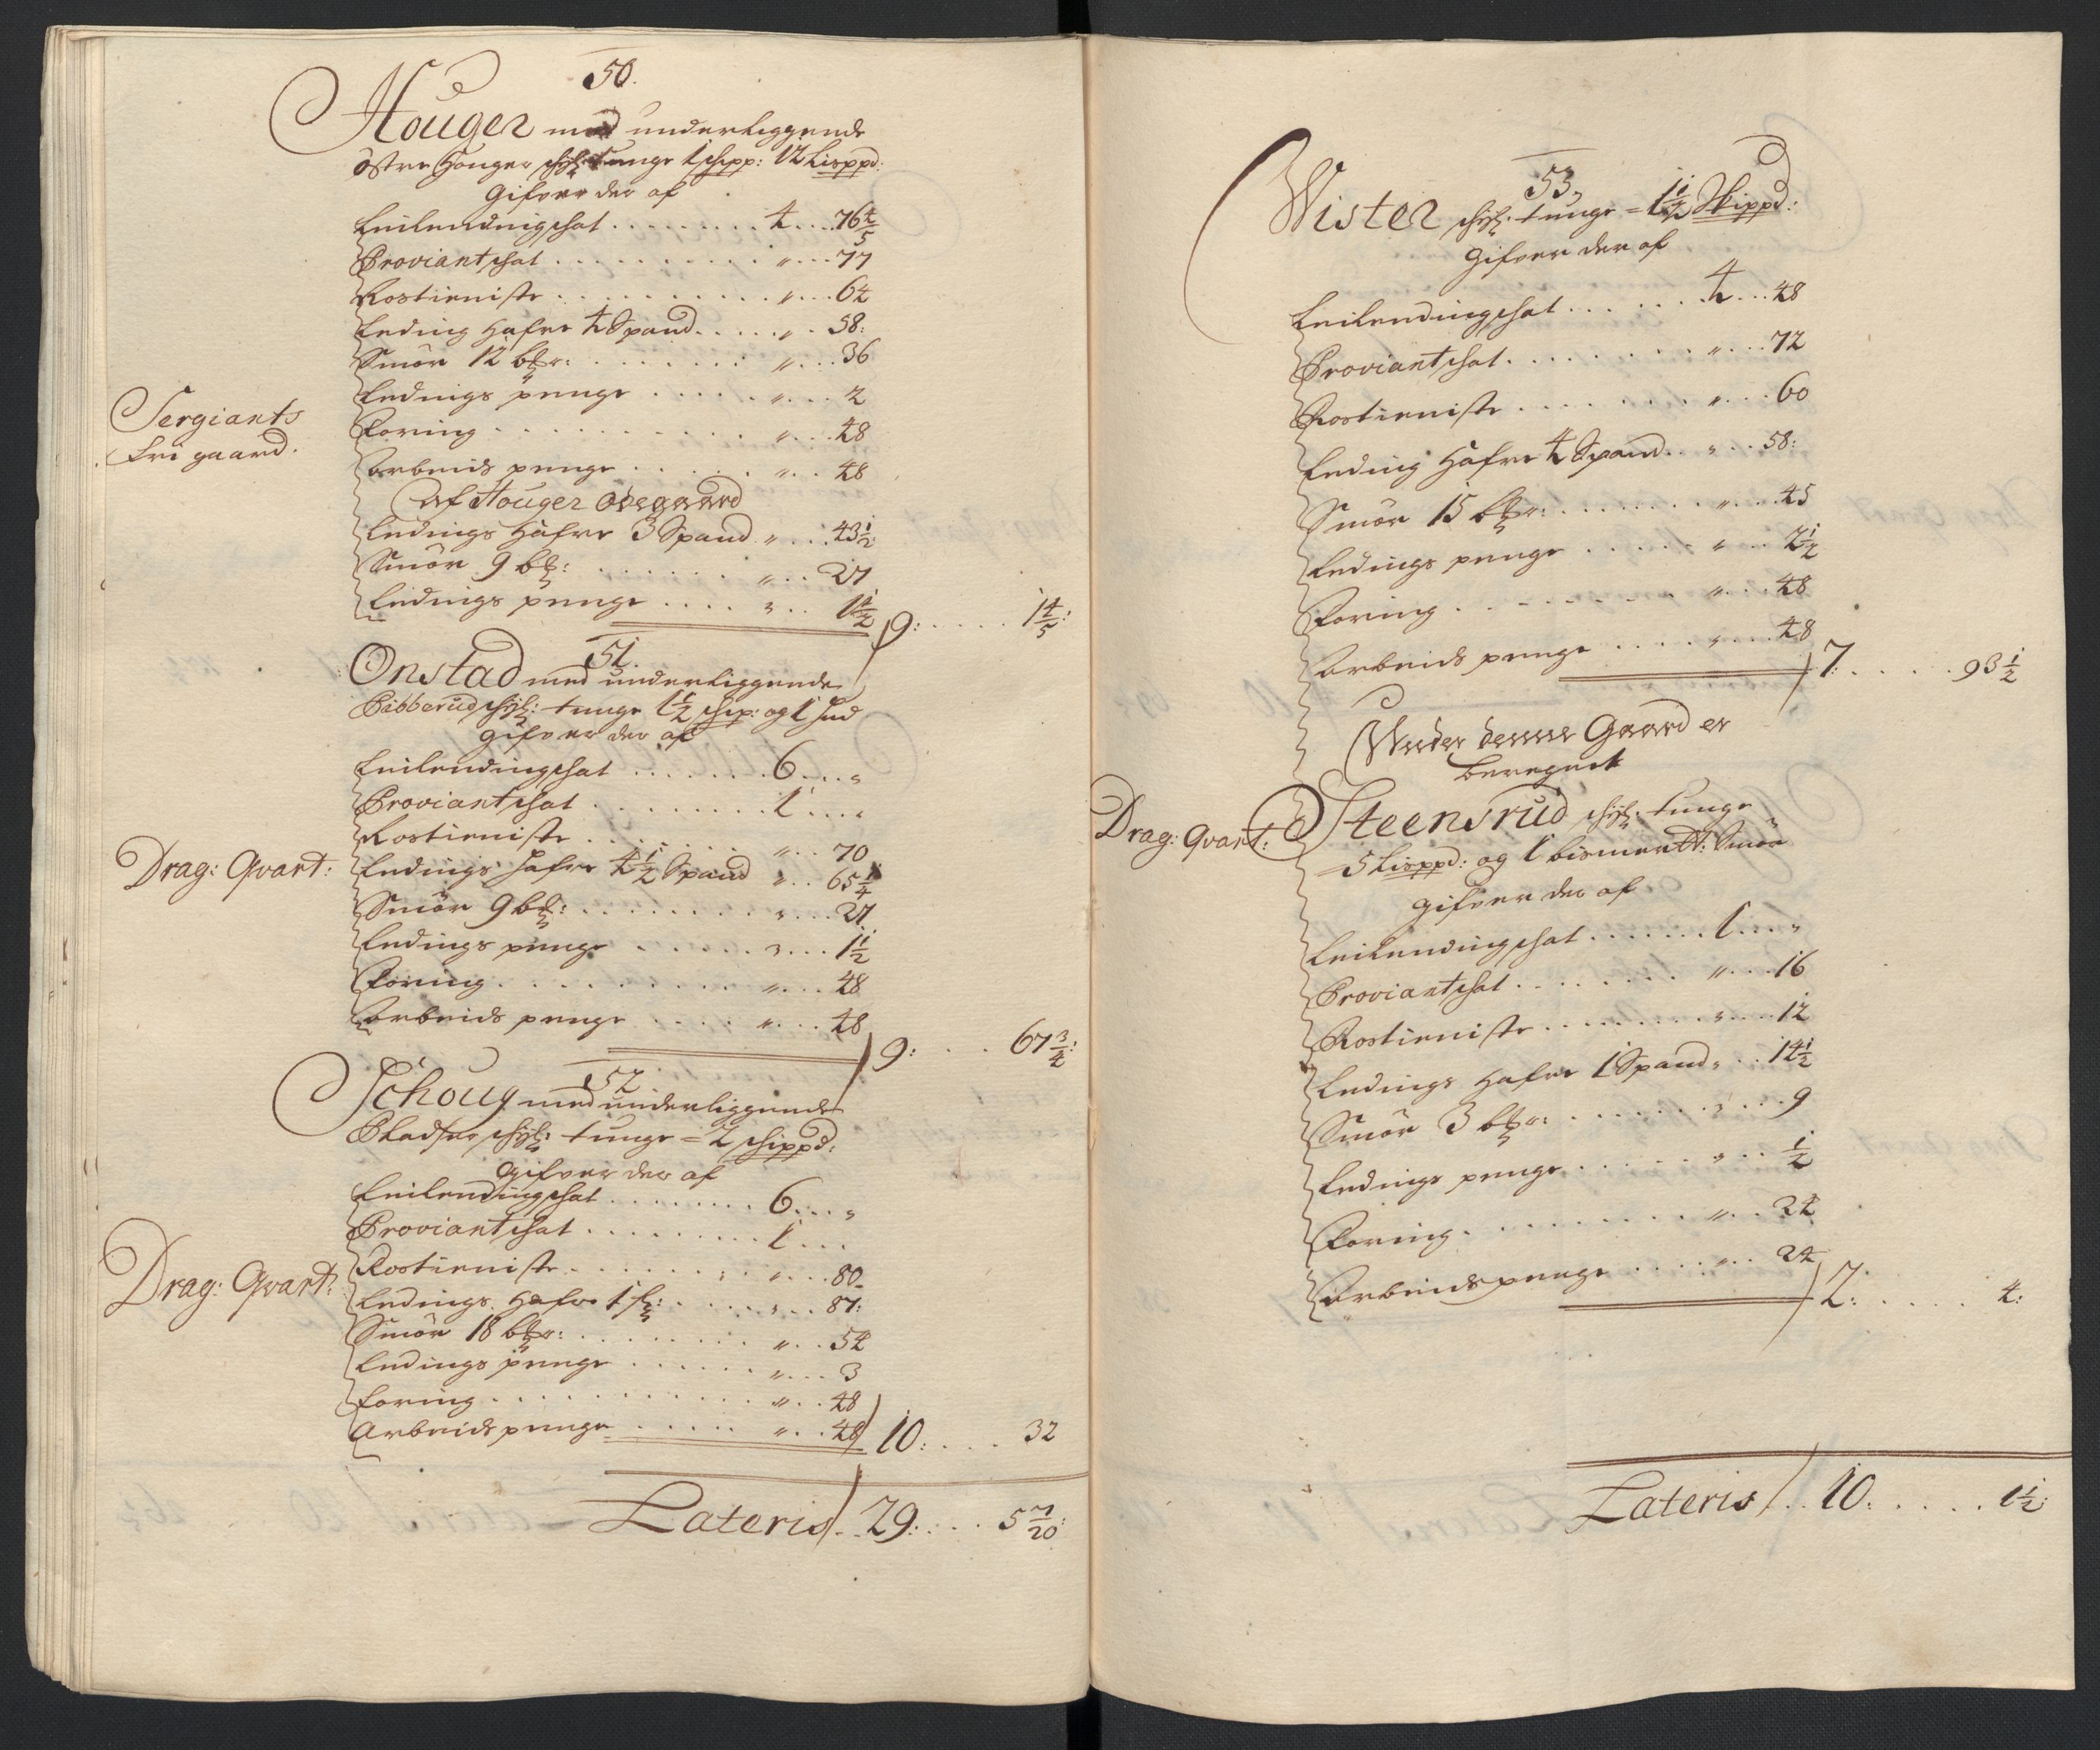 50.
Houger med underliggende
östre Houger schyl: tunge 1 schpp: 12 Lisppd:
Gifver der af
Leilendingschat . . . . . . . . . 4 . . . . 76 4/5
Proviantschat . . . . . . . . . . " . . . 77
Rostieniste . . . . . . . . . . " . . . 64
Leding Hafre 4 Spand . . . . . " . . 58:
Smör 12 b  r: . . . . . . . . " . . . 36
Ledings penge . . . . . " . . . . 2
Foring . . . . . . . . . . . " . . . 48
Arbeids penge . . . . . " . . . 48
Sergiants
Fri gaard.
Af Houger Ödegaard
Ledings Hafre 3 Spand " . . . 43 1/2:
Smör 9 b : . . . . . . . " . . . 27
Ledings penge . . . . " . . 1 1/2 / 9: . . . . . 1 4/5:
51.
Onstad med underliggende
Pabberud schyl: tunge 1 1/2 schp: og 1 Hud
gifver der af
Leilendingschat . . . . . . . 6 . . . "
Proviantschat . . . . . . . . . 1 . . . "
Rostieniste . . . . . . . . " . . 70
Drag: Qvart: Ledings Hafre 4 1/2 Spand " . . 65 1/4
Smör 9 b : . . . . . . . . " . . . 27.
Ledings penge . . . . . . " . . . 1 1/2
Foring . . . . . . . . . . " . . . 48
Arbeids penge . . . . " . . . 48 / 9: . . . 67 3/4:
52
Schoug med underliggende
Pladser schyl: tunge = 2 schippd:
Gifver der af
Leilendingschat . . . . . . . . 6 . . . "
Proviantschat . . . . . . . . . 1 . . .
Drag: Qvart: Rostieniste . . . . . . . " . . . 80
Ledings Hafre 1 f : . . . . . " . . . 87:
Smör 18 b  r: . . . . . . . . " . . . 54
Ledings penge . . . . . . " . . . 3
Foring . . . . . . . . . . . " . . . 48
Arbeids penge . . . . . . " . . . 48 / 10: . . . . 32
Lateris / . . 29: . . . . 5 7/20:
53
Wister schyl: tunge = 1 1/2 Skippd:
gifver der af
Leilendingschat . . . . . . . 4 . . . 48
Proviantschat . . . . . . . . " . . . 72
Rostieniste . . . . . . . . " . . . 60
Leding Hafre 4 Spand . . " . . 58:
Smör 15 b  r: . . . . . . . " . . . 45
Ledings penge . . . . . . " . . . 2 1/2
Foring . . . . . . . . . " . . . 48
Arbeids penge . . . . . " . . . 48 / 7: . . . . . 93 1/2
Under denne Gaard er
beregnet
Drag: Qvart: Steensrud schyl: tunge
5 Lisppd: og 1 bismer  : Smör
gifver der af
Leilendingschat . . . . . . . 1 . . . "
Proviantschat . . . . . . . . " . . . 16
Rostieniste . . . . . . . . . " . . . 12
Ledings Hafre 1 Spand " . . 14 1/2
Smör 3 b  r: . . . . . . . " . . . 9
Ledings penge . . . . . . " . . 1/2
Foring . . . . . . . . . " . . 24
Arbeids penge . . . . . " . . 24 / 2: . . . . . 4:
Lateris / . . 10: . . . . . 1 1/2: